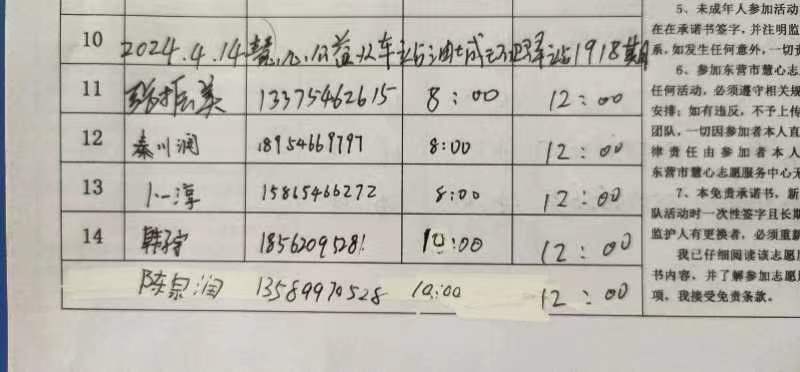 10 2024.4.14 慧心公益火车站油城
11 彭振美 13375462615 8:00 12:00
12 秦川润 18954669797 8:00 12:00
13 淳 15865466272 8:00 12:00
14 韩 18562095281 10:00 12:00
陈泉润 13589970528 10:00 12:00
5、未成年人参加活动
在在承诺书签字，并注明监
系，如发生任何意外，一切责
6、参加东营市慧心志
任何活动，必须遵守相关规
安排；如有违反，不予上传
团队，一切因参加者本人直
律责任由参加者本人
东营市慧心志愿服务中心无
7、本免责承诺书，新
队活动时一次性签字且长期
监护人有更换者，必须重新
我已仔细阅读该志愿
书内容，并了解参加志愿
项，我接受免责条款。